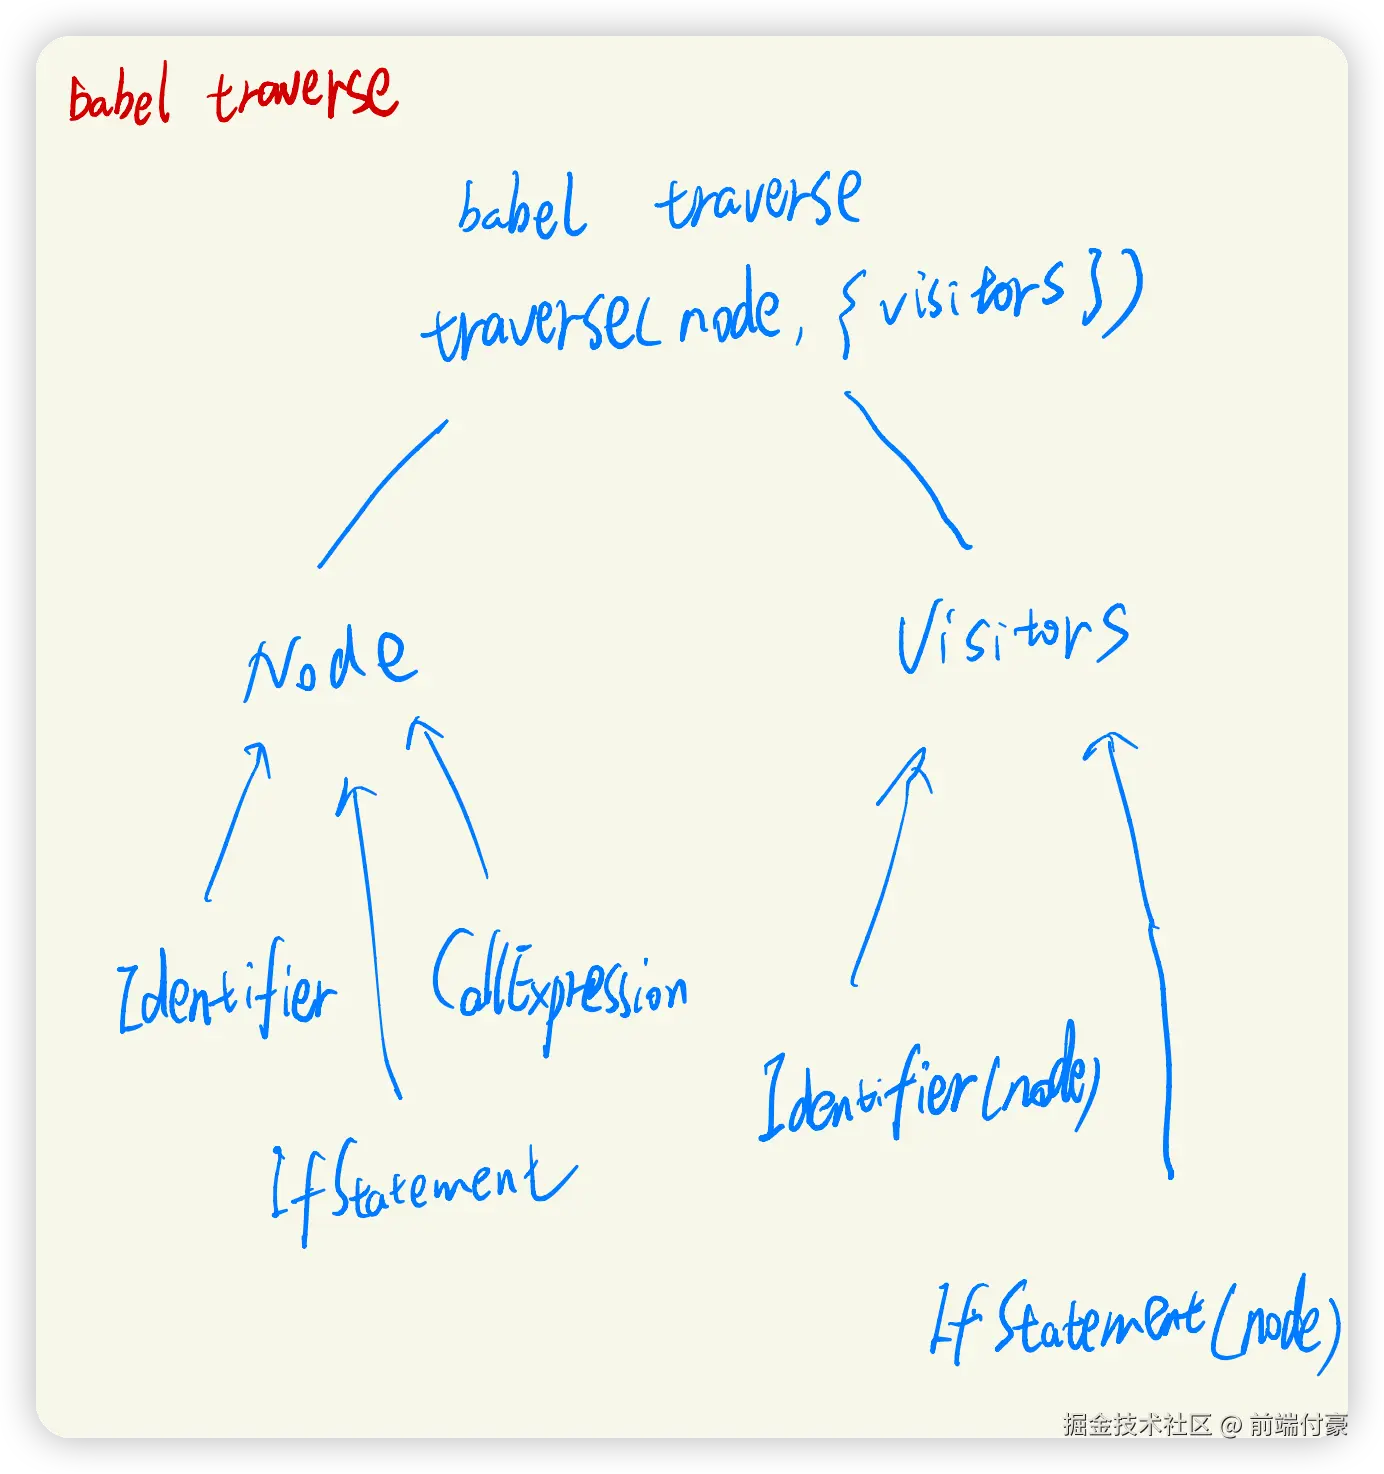 babel traverse
babel traverse
traverse(node, {visitors})
Node
Visitors
Identifier
CallExpression
IfStatement
Identifier(node)
IfStatement(node)
掘金技术社区 @ 前端付豪